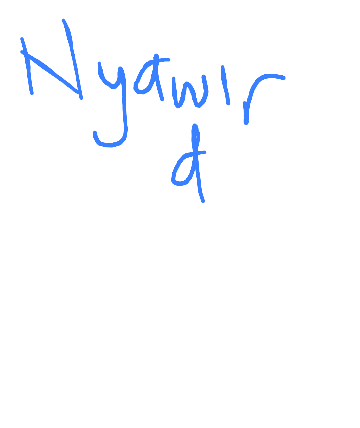 Nyawir
d